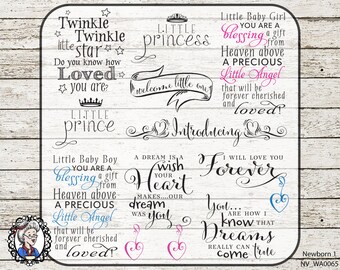 Twinkle
Twinkle
little
star
Do you know how
Loved
you are?
LITTLE
princess
Little Baby Girl
YOU ARE A
blessing a gift
from
Heaven above
A PRECIOUS
Little Angel
that will be
forever cherished
and
loved
welcome little one
LITTLE
prince
Introducing
Little Baby Boy
YOU ARE A
blessing a gift
from
Heaven above
A PRECIOUS
Little Angel
that will be
forever cherished
and
loved
A DREAM IS A
wish
YOUR
Heart
MAKES...OUR
dream
WAS you!
I WILL LOVE YOU
Forever
You...
ARE HOW I
know that
DREAMS
REALLY CAN come true
Newborn 1
NV_WA0065